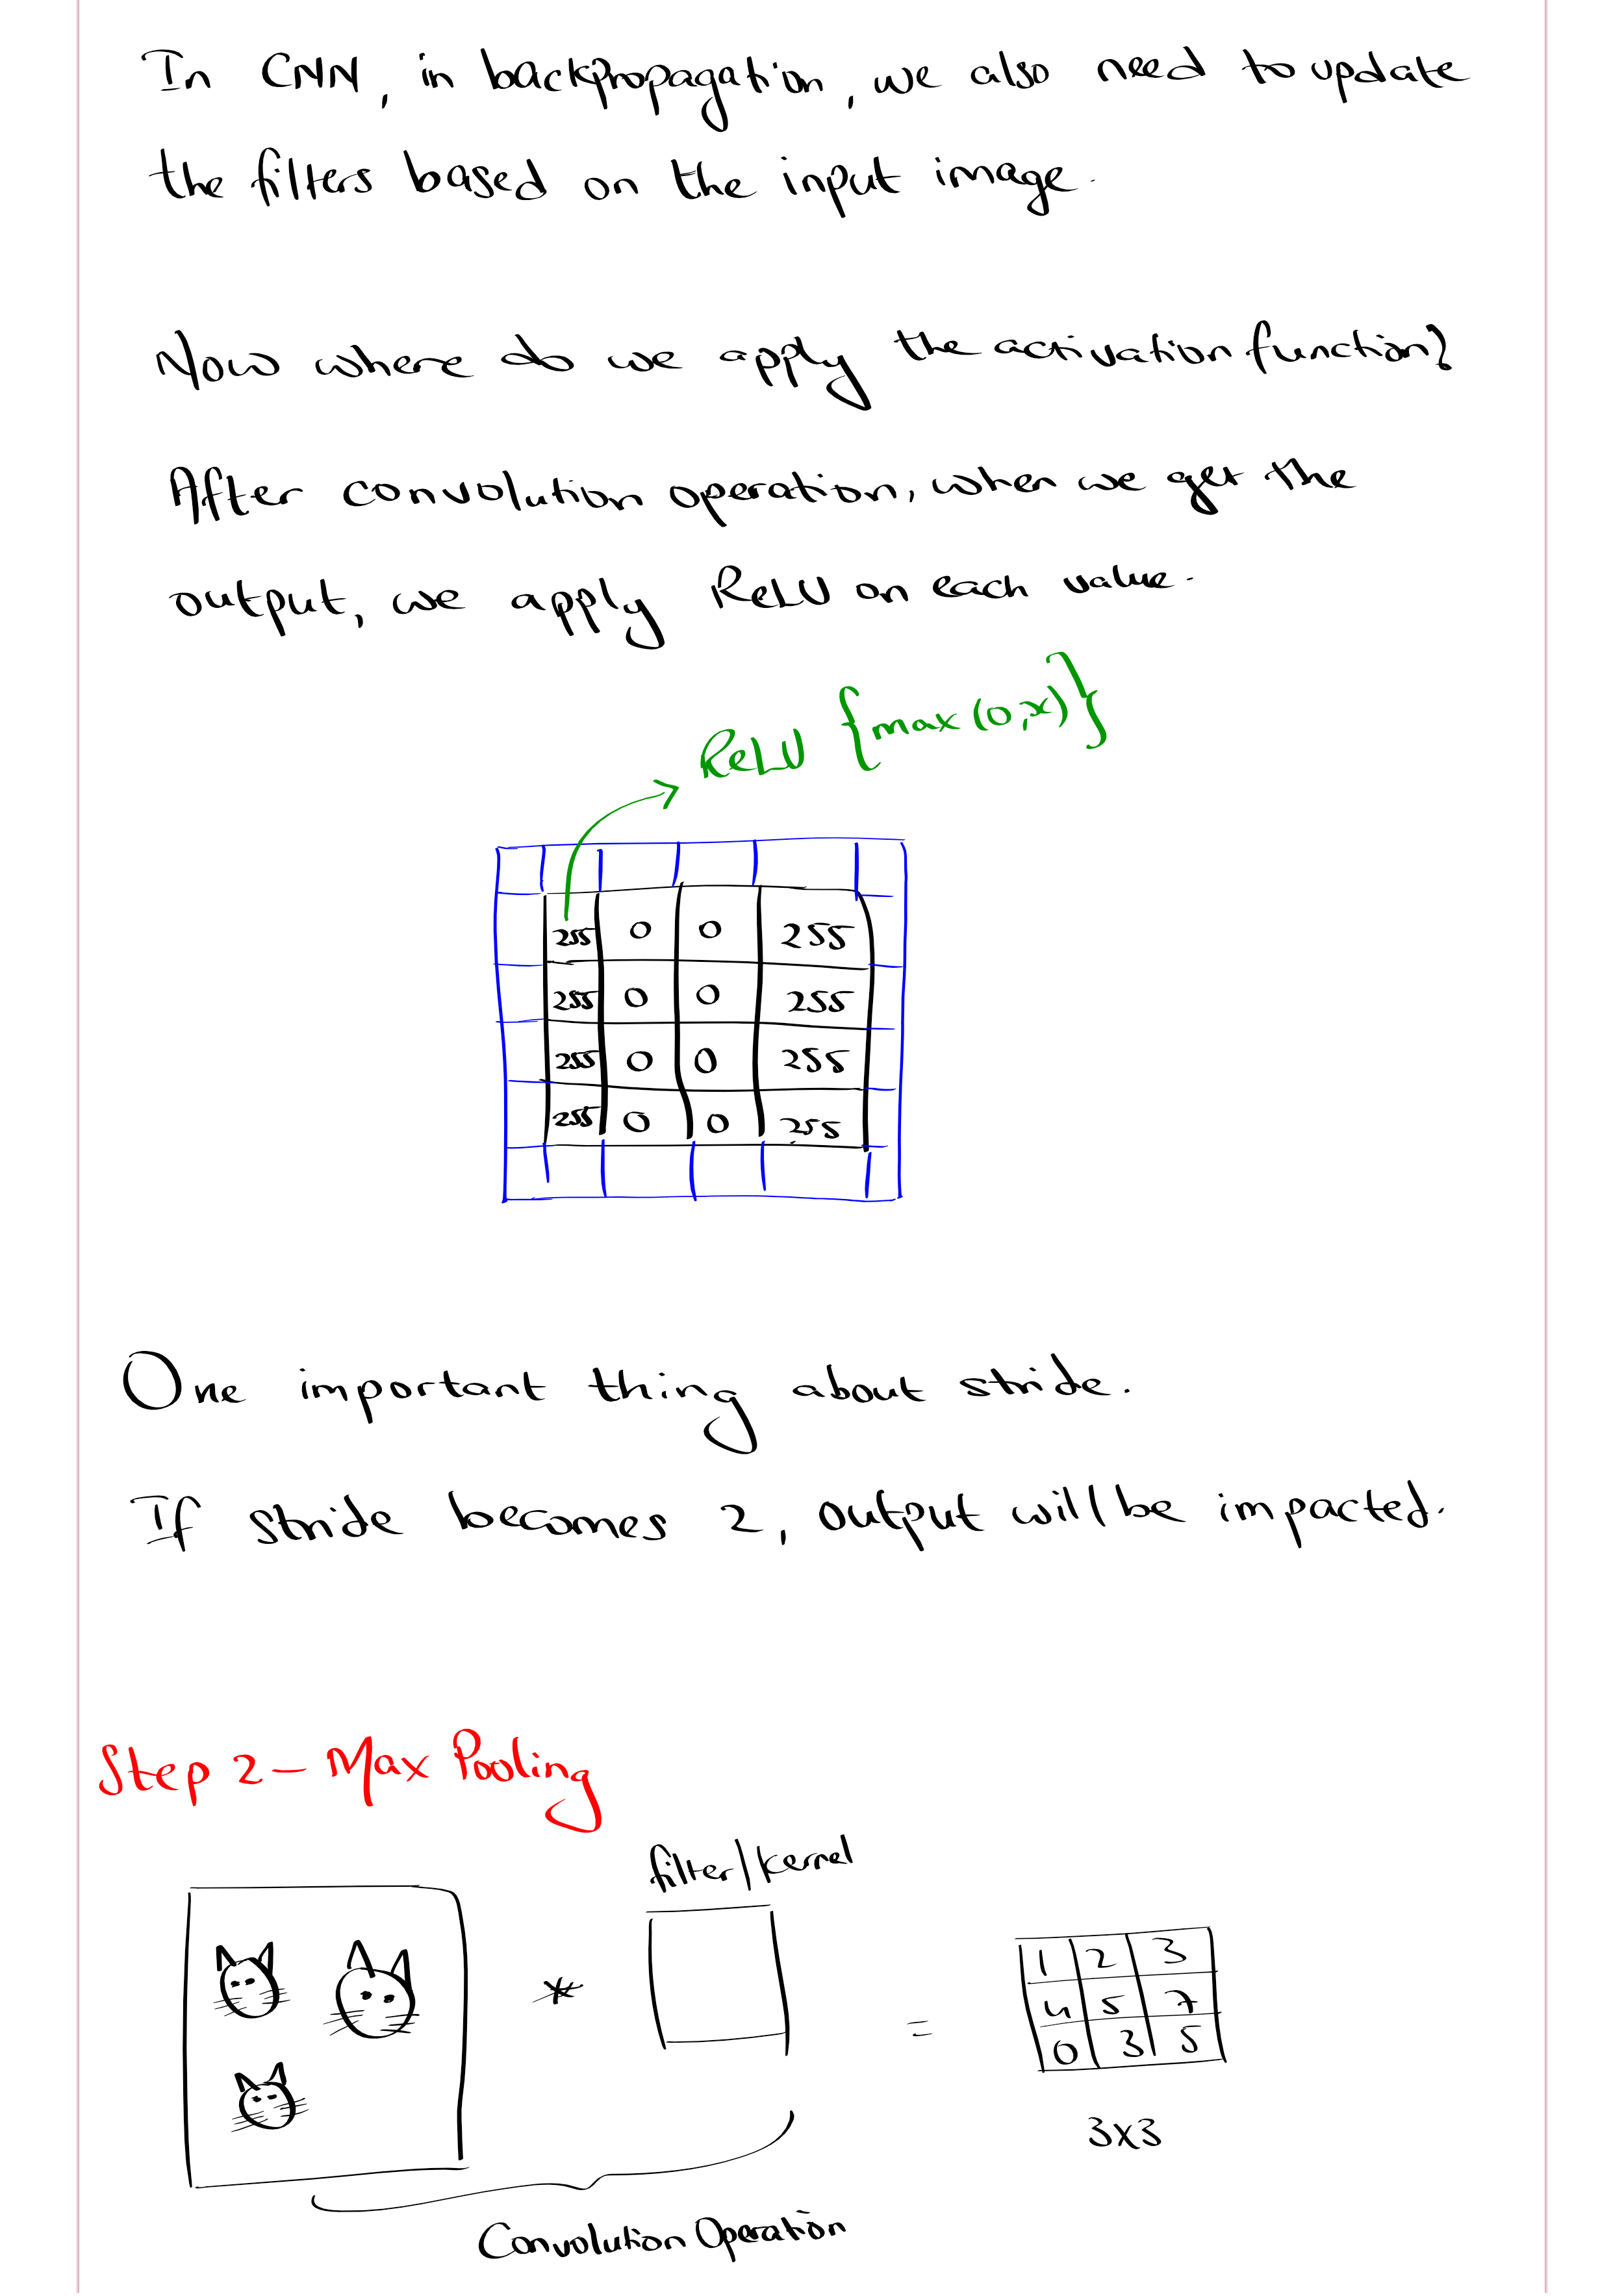 In CNN, in backpropagation, we also need to update
the filters based on the input image.
Now where do we apply the activation function?
After convolution operation, when we get the
output, we apply ReLU on each value.
ReLU {max(0,x)}
255 0 0 255
255 0 0 255
255 0 0 255
255 0 0 255
One important thing about stride.
If stride becomes 2, output will be impacted.
Step 2 - Max Pooling
filter/kernel
*
=
1 2 3
4 5 7
0 3 5
3x3
Convolution Operation